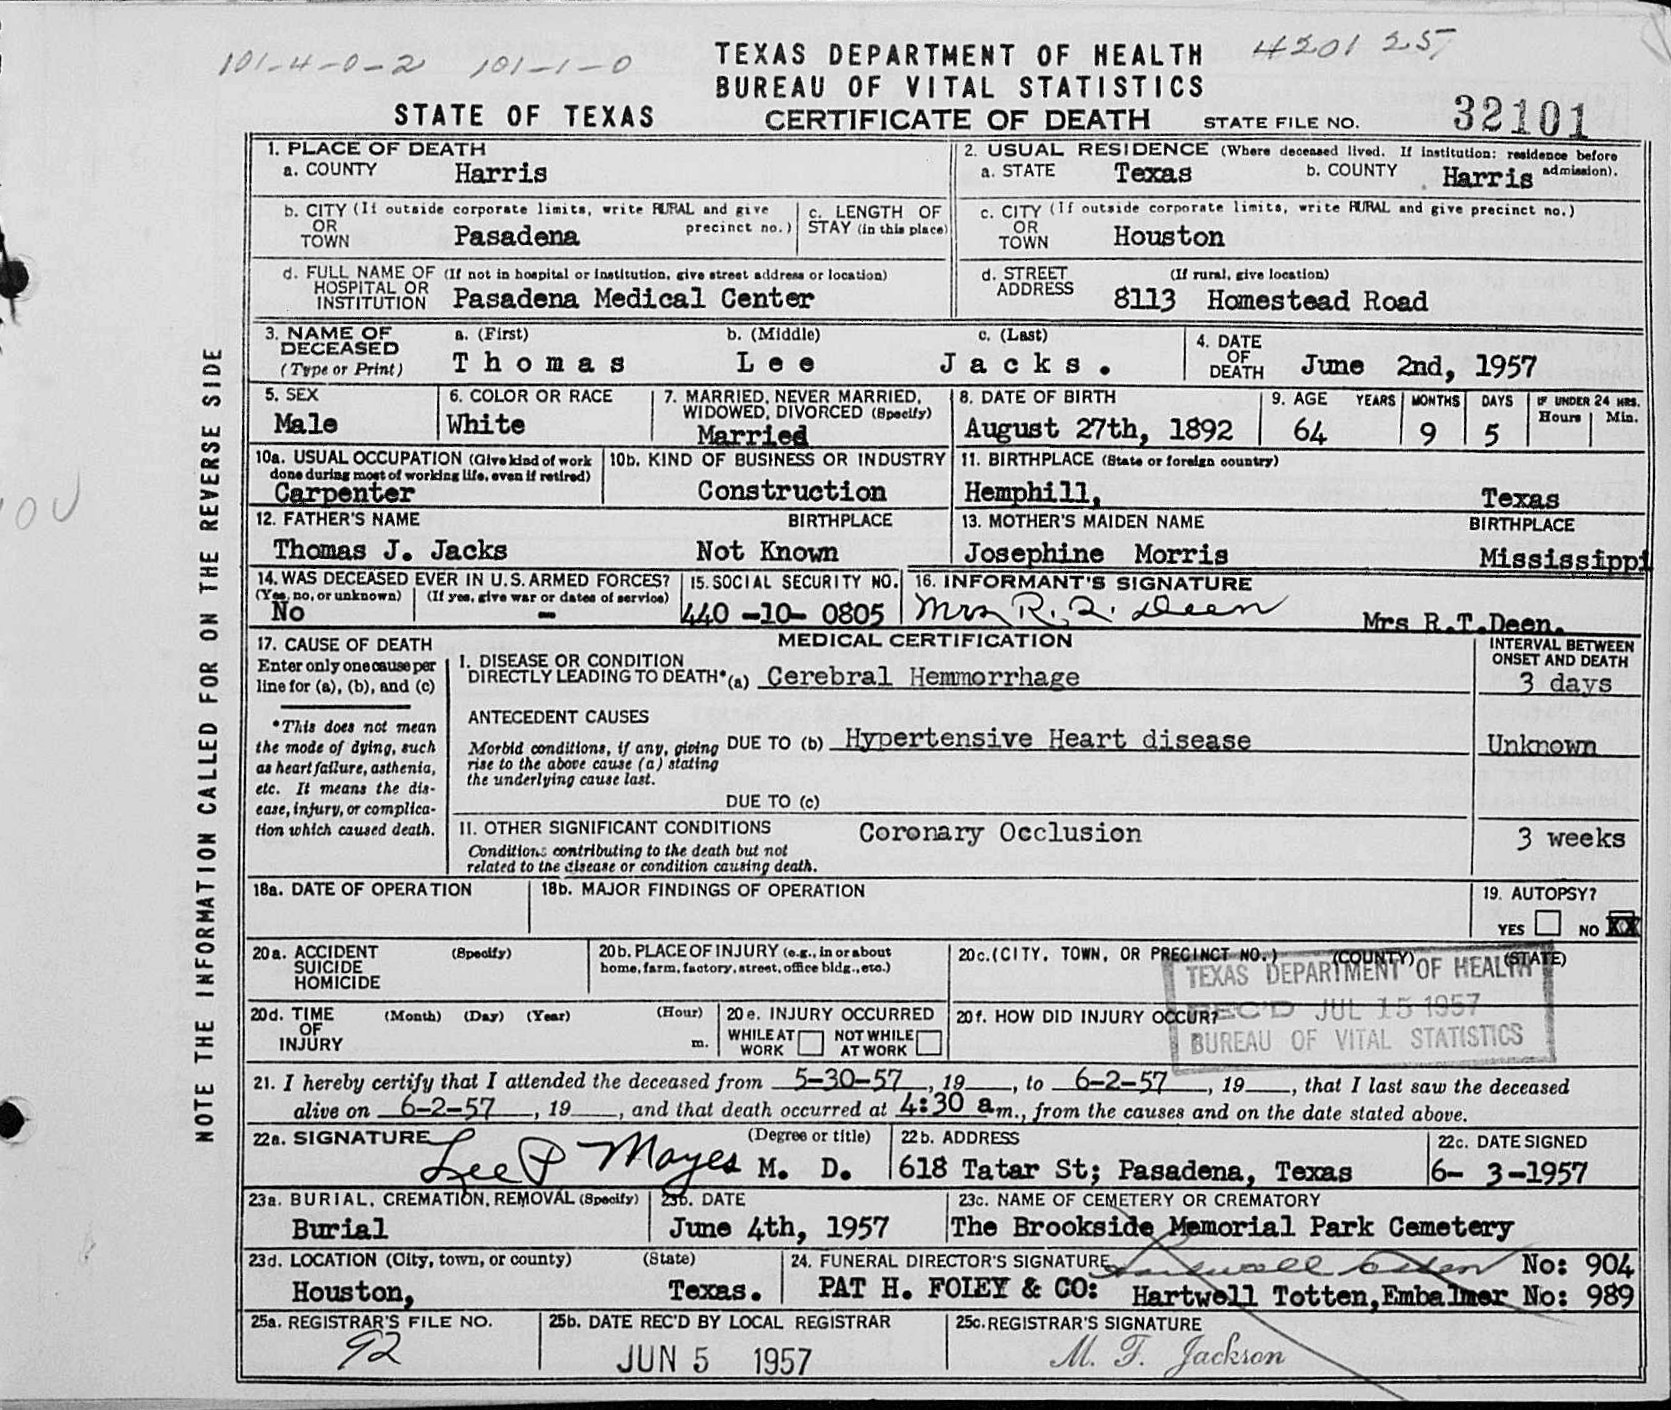 101-4-0-2 101-1-0
4201 257
TEXAS DEPARTMENT OF HEALTH
BUREAU OF VITAL STATISTICS
STATE OF TEXAS CERTIFICATE OF DEATH STATE FILE NO. 32101
NOTE THE INFORMATION CALLED FOR ON THE REVERSE SIDE
1. PLACE OF DEATH
a. COUNTY Harris
2. USUAL RESIDENCE (Where deceased lived. If institution: residence before admission).
a. STATE Texas b. COUNTY Harris
b. CITY (If outside corporate limits, write RURAL and give precinct no.)
OR
TOWN Pasadena
c. LENGTH OF
STAY (in this place)
c. CITY (If outside corporate limits, write RURAL and give precinct no.)
OR
TOWN Houston
d. FULL NAME OF (If not in hospital or institution, give street address or location)
HOSPITAL OR
INSTITUTION Pasadena Medical Center
d. STREET (If rural, give location)
ADDRESS 8113 Homestead Road
3. NAME OF
DECEASED
(Type or Print)
a. (First) b. (Middle) c. (Last)
Thomas Lee Jacks.
4. DATE
OF
DEATH June 2nd, 1957
5. SEX
Male
6. COLOR OR RACE
White
7. MARRIED, NEVER MARRIED,
WIDOWED, DIVORCED (Specify)
Married
8. DATE OF BIRTH
August 27th, 1892
9. AGE YEARS MONTHS DAYS IF UNDER 24 HRS.
Hours Min.
64 9 5
10a. USUAL OCCUPATION (Give kind of work
done during most of working life, even if retired)
Carpenter
10b. KIND OF BUSINESS OR INDUSTRY
Construction
11. BIRTHPLACE (State or foreign country)
Hemphill, Texas
12. FATHER'S NAME BIRTHPLACE
Thomas J. Jacks Not Known
13. MOTHER'S MAIDEN NAME BIRTHPLACE
Josephine Morris Mississippi
14. WAS DECEASED EVER IN U.S. ARMED FORCES?
(Yes, no, or unknown) (If yes, give war or dates of service)
No -
15. SOCIAL SECURITY NO.
440 -10- 0805
16. INFORMANT'S SIGNATURE
Mrs R. T. Deen Mrs R.T.Deen.
17. CAUSE OF DEATH
Enter only one cause per
line for (a), (b), and (c)
*This does not mean
the mode of dying, such
as heart failure, asthenia,
etc. It means the dis-
ease, injury, or complica-
tion which caused death.
MEDICAL CERTIFICATION
INTERVAL BETWEEN
ONSET AND DEATH
I. DISEASE OR CONDITION
DIRECTLY LEADING TO DEATH*(a) Cerebral Hemmorrhage 3 days
ANTECEDENT CAUSES
Morbid conditions, if any, giving
rise to the above cause (a) stating
the underlying cause last.
DUE TO (b) Hypertensive Heart disease Unknown
DUE TO (c)
II. OTHER SIGNIFICANT CONDITIONS Coronary Occlusion 3 weeks
Conditions contributing to the death but not
related to the disease or condition causing death.
18a. DATE OF OPERATION 18b. MAJOR FINDINGS OF OPERATION
19. AUTOPSY?
YES NO XX
20a. ACCIDENT (Specify)
SUICIDE
HOMICIDE
20b. PLACE OF INJURY (e.g., in or about
home, farm, factory, street, office bldg., etc.)
20c. (CITY, TOWN, OR PRECINCT NO.) (COUNTY) (STATE)
TEXAS DEPARTMENT OF HEALTH
REC'D JUL 15 1957
BUREAU OF VITAL STATISTICS
20d. TIME (Month) (Day) (Year) (Hour)
OF
INJURY m.
20e. INJURY OCCURRED
WHILE AT
WORK
NOT WHILE
AT WORK
20f. HOW DID INJURY OCCUR?
21. I hereby certify that I attended the deceased from 5-30-57, 19___, to 6-2-57, 19___, that I last saw the deceased
alive on 6-2-57, 19___, and that death occurred at 4:30 a m., from the causes and on the date stated above.
22a. SIGNATURE (Degree or title)
Lee P Mayes M. D.
22b. ADDRESS
618 Tatar St; Pasadena, Texas
22c. DATE SIGNED
6- 3-1957
23a. BURIAL, CREMATION, REMOVAL (Specify)
Burial
23b. DATE
June 4th, 1957
23c. NAME OF CEMETERY OR CREMATORY
The Brookside Memorial Park Cemetery
23d. LOCATION (City, town, or county) (State)
Houston, Texas.
24. FUNERAL DIRECTOR'S SIGNATURE Hartwell Totten No: 904
PAT H. FOLEY & CO: Hartwell Totten,Embalmer No: 989
25a. REGISTRAR'S FILE NO.
92
25b. DATE REC'D BY LOCAL REGISTRAR
JUN 5 1957
25c. REGISTRAR'S SIGNATURE
M. F. Jackson